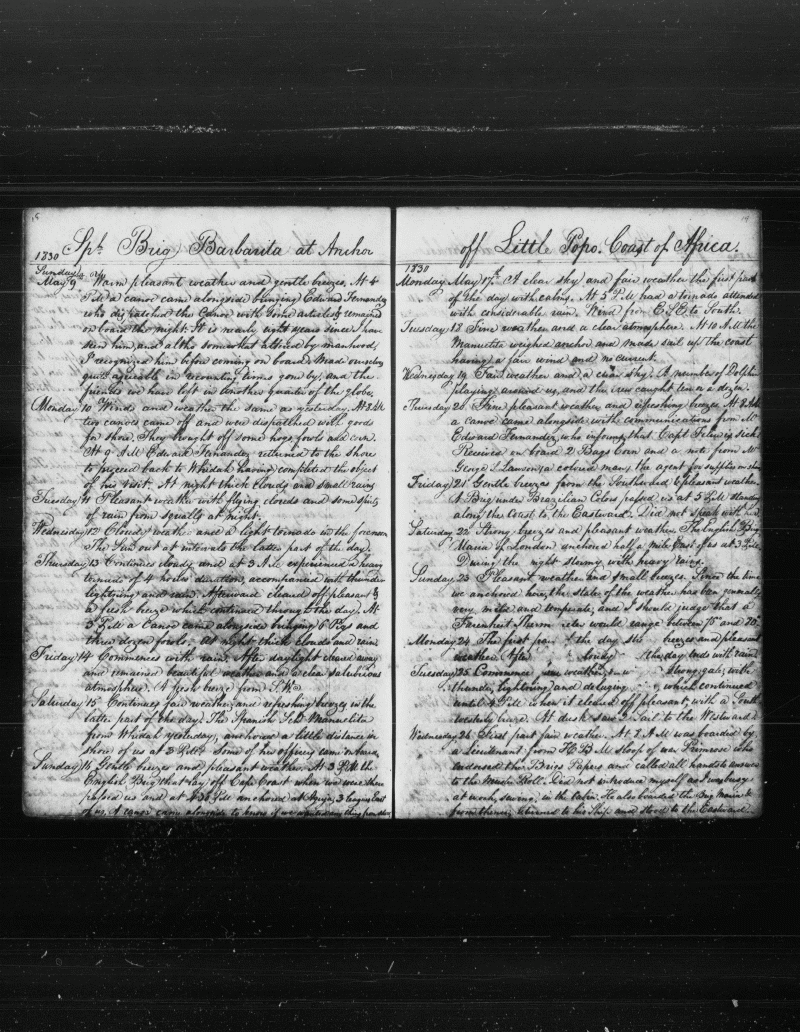 Sph. Brig Barbarita at Anchor
1830
Sunday
May 9th Warm pleasant weather and gentle breezes. At 4
P.M a canoe came alongside bringing Edward Fernandez
who dispatched the Canoe with some articles & remained
on board the night. It is nearly eight years since I have
seen him, and altho somewhat altered by manhood,
I recognized him before coming on board. Made ourselves
quite agreeable in recounting times gone by, and the
friends we have left in another quarter of the globe.
Monday 10 Winds and weather the same as yesterday. At
two canoes came off and were dispatched with goods
for shore. They brought off some hogs, fowls and corn.
At 9 A.M Edward Fernandez returned to the shore
to proceed back to Whidah having completed the object
of his visit. At night thick clouds and small rain
Tuesday 11 Pleasant weather with flying clouds and some spits
of rain from squally at night.
Wednesday 12 Cloudy weather and a light tornado in the forenoon
The Sun out at intervals the latter part of the day.
Thursday 13 Continues cloudy and at 3 A.M experienced a heavy
tornado of 4 hours duration, accompanied with thunder
lightning and rain. Afterward cleared off pleasant &
a fresh breeze which continued through the day. At
5 P.M a Canoe came alongside bringing 6 Pigs and
three dozen fowls. At night thick clouds and rain
Friday 14 Commences with rain. After daylight cleared away
and remained beautiful weather and a clear salubrious
atmosphere. A fresh breeze from S.W.
Saturday 15 Continues fair weather, and refreshing breezes in the
latter part of the day. The Spanish Schr Manuelita
from Whidah yesterday, anchored a little distance in
shore of us at 3 P.M. Some of his officers came on board
Sunday 16 Gentle breezes and pleasant weather. At 3 P.M the
English Brig that lay off Cape Coast when we were there
passed us and at 4.30 P.M anchored at 3 leagues East
of us. A canoe came alongside to know if we wanted any thing from shore
19
off Little Popo. Coast of Africa.
1830
Monday May 17th A clear sky and fair weather the first part
of the day with calms. At 5 P.M had a tornado attended
with considerable rain. Wind from E.S.E to South.
Tuesday 18 Fine weather and a clear atmosphere. At 10 A.M the
Manuelita weighed anchor and made sail up the coast
having a fair wind and no current.
Wednesday 19 Fair weather and a clear sky. A number of Dolphin
playing around us, and the crew caught ten or a dozen.
Thursday 20 Fine pleasant weather and refreshing breeze. At
a canoe came alongside with communications from Mr
Edward Fernandez, who informs that Capt is sick
Received on board 2 Bags Corn and a note from Mr
George L. Lawson (a colored man) the agent for supplies on shore
Friday 21 Gentle breezes from the Southward & pleasant weather.
A Brig under Brazilian Colors passed us at 5 P.M standing
along the Coast to the Eastward. Did not speak with her
Saturday 22 Strong breezes and pleasant weather. The English Brig
Maria of London anchored half a mile East of us at 3 P.M.
During the night stormy with heavy rain.
Sunday 23 Pleasant weather and small breezes. Since the time
we anchored here, the state of the weather has been generally
very mild and temperate, and I should judge that a
Farenheit Therm eter would range between 75 and 80°
Monday 24 The first part the day breezes and pleasant
weather. After the day ends with rain
Tuesday 25 Commence weather, strong gale, with
thunder, lightning and deluging which continued
until 4 P.M when it cleared off pleasant, with a South
westerly breeze. At dusk saw a Sail to the Westward
Wednesday 26 First part fair weather. At 2 A.M was boarded by
a Lieutenant from H B M Sloop of war Primrose who
endorsed the Brigs Papers and called all hands to answer
to the Muster Roll. Did not introduce myself as I was busy
at work, sewing, in the cabin. He also boarded the Brig Maria &
from thence, returned to his Ship and stood to the Eastward.